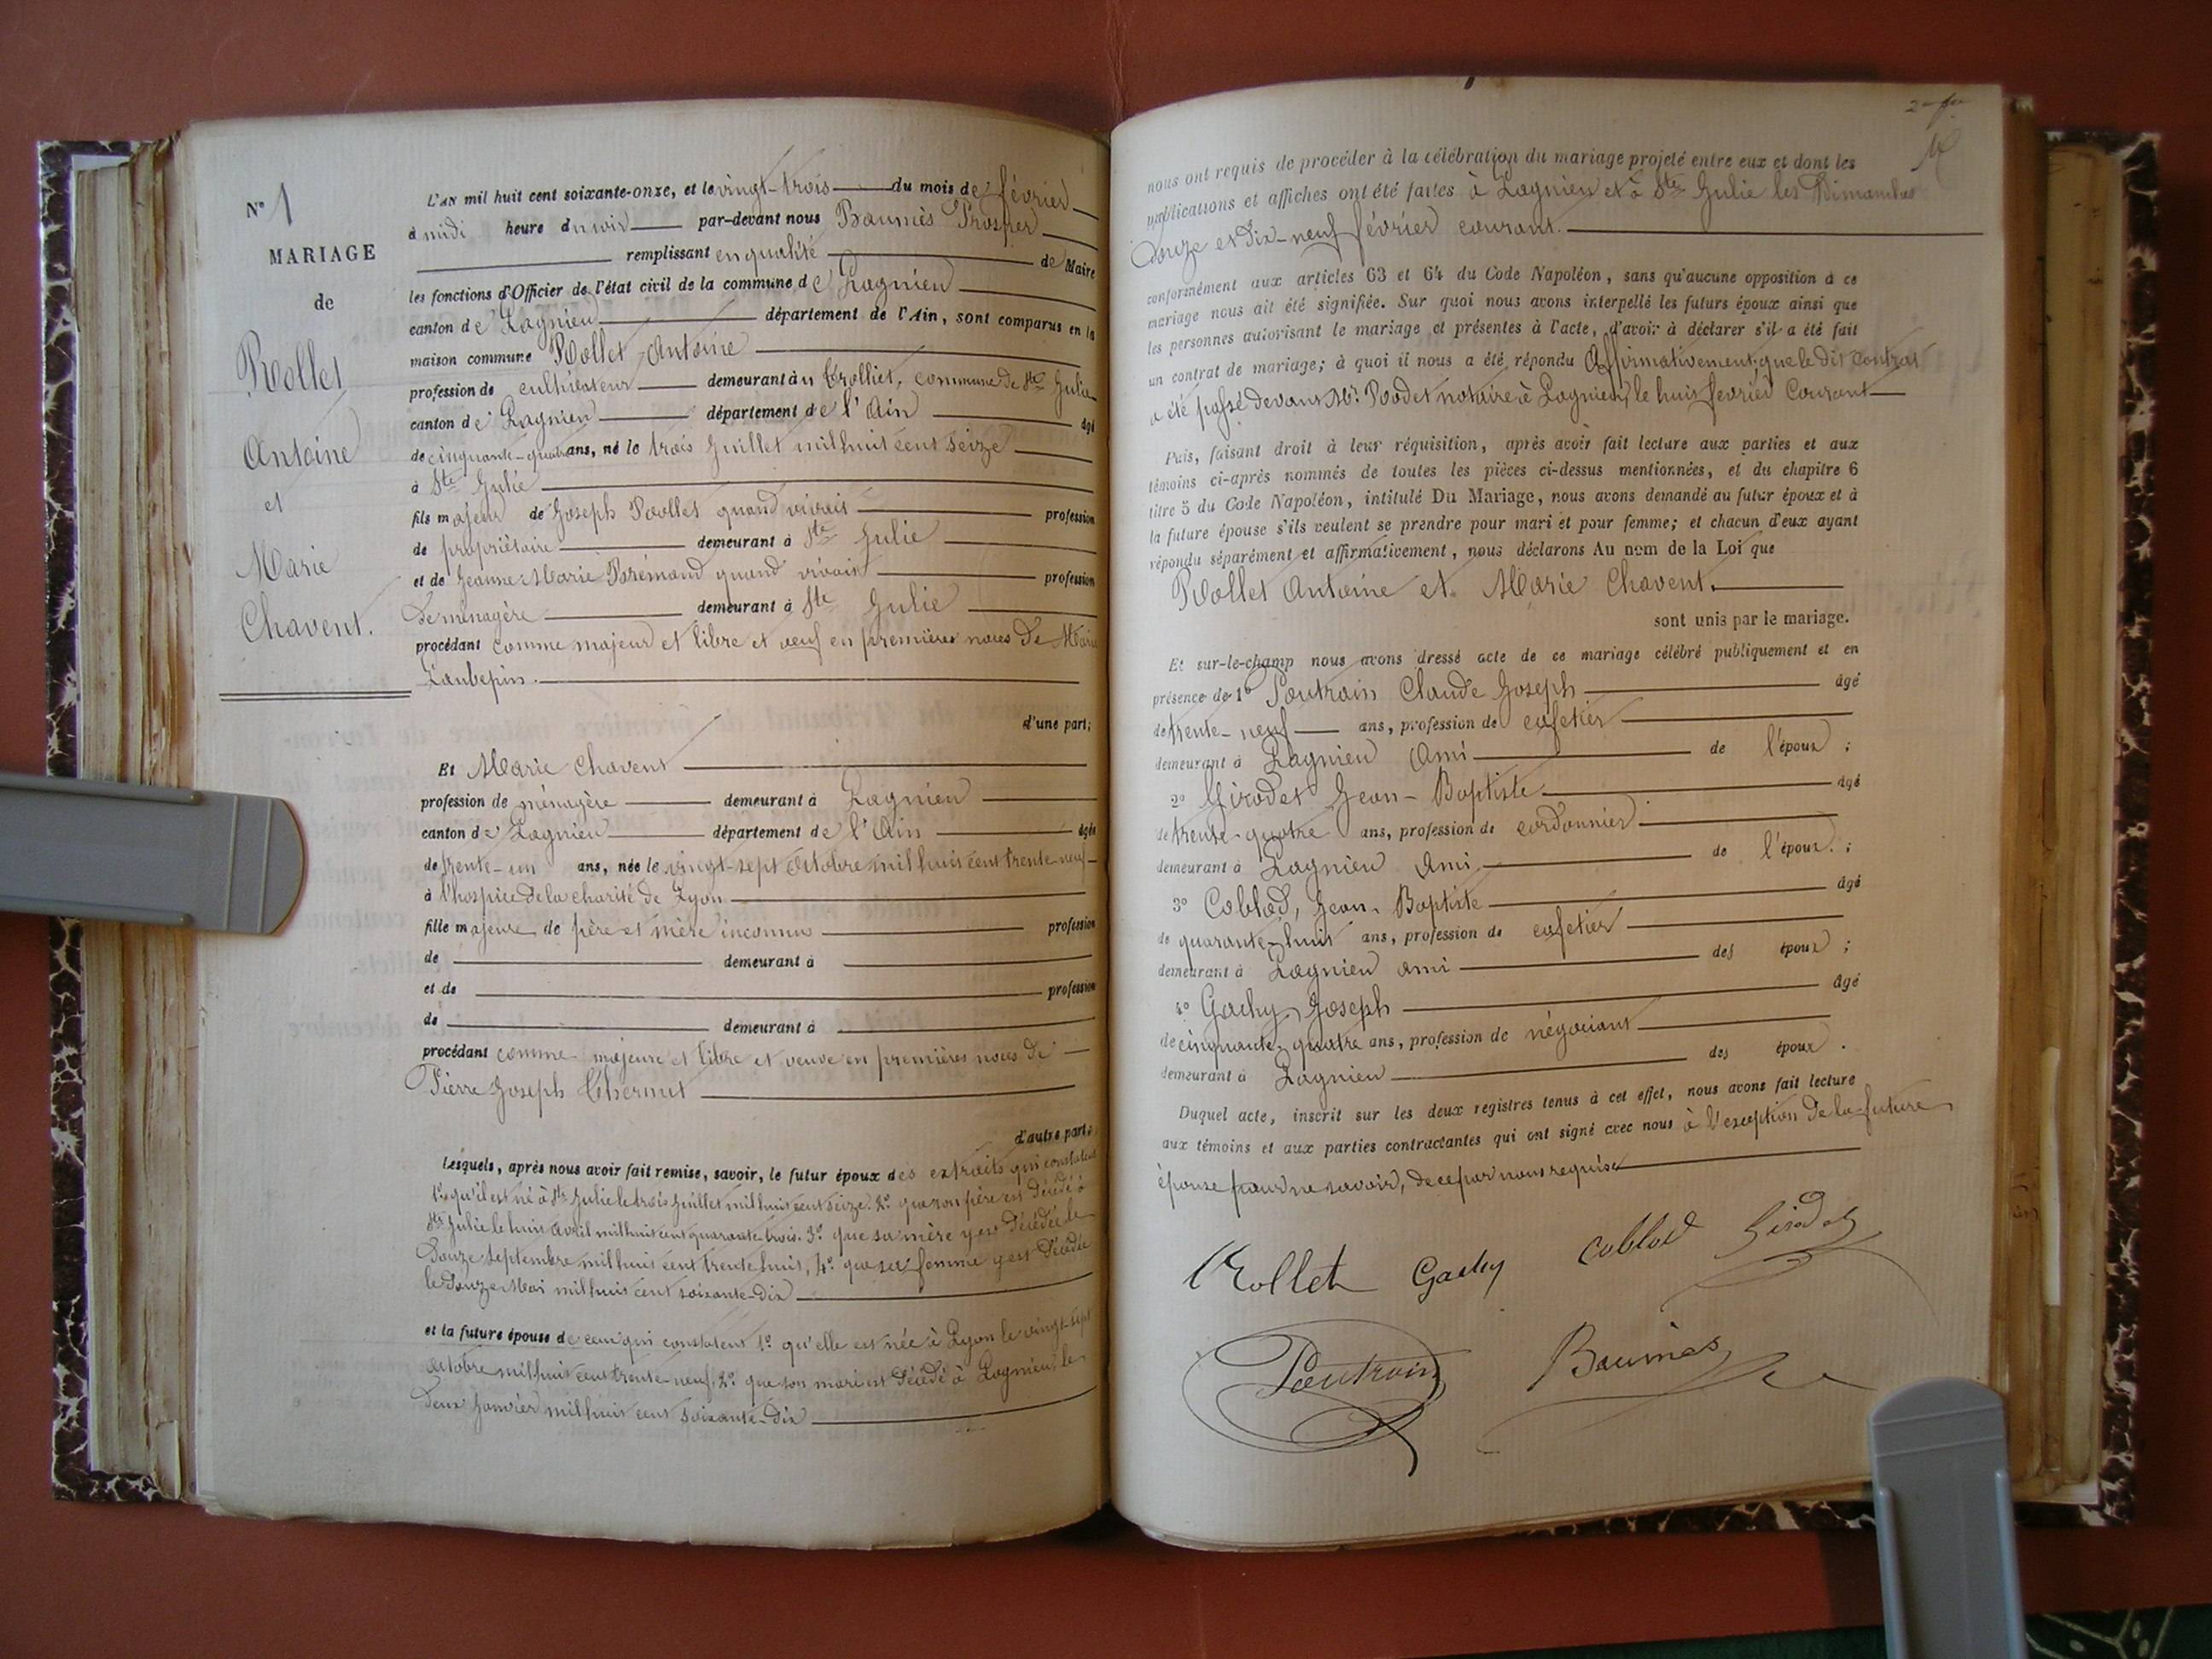 N° 1
MARIAGE
de
Rollet
Antoine
et
Marie
Chavent.
L'AN mil huit cent soixante-onze, et le vingt-trois du mois de février
à midi heure du soir par-devant nous Baumès Prosper
remplissant en qualité de Maire
les fonctions d'Officier de l'état civil de la commune de Lagnieu
canton de Lagnieu département de l'Ain, sont comparus en la
maison commune Rollet Antoine
profession de cultivateur demeurant au Trolliet, commune de Ste Julie
canton de Lagnieu département de l'Ain âgé
de cinquante-quatre ans, né le trois Juillet mil huit cent seize
à Ste Julie
fils majeur de Joseph Rollet quand vivait profession
de propriétaire demeurant à Ste Julie
et de Jeanne Marie Brémand quand vivait profession
de ménagère demeurant à Ste Julie
procédant comme majeur et libre et veuf en premières noces de Marie
Laubepin.
d'une part;
Et Marie Chavent
profession de ménagère demeurant à Lagnieu
canton de Lagnieu département de l'Ain âgée
de trente-un ans, née le vingt-sept Octobre mil huit cent trente-neuf
à l'hospice de la charité de Lyon
fille majeure de père et mère inconnus profession
de demeurant à
et de profession
de demeurant à
procédant comme majeure et libre et veuve en premières noces de
Pierre Joseph
d'autre part;
Lesquels, après nous avoir fait remise, savoir, le futur époux des extraits qui constatent
1° qu'il est né à Ste Julie le trois Juillet mil huit cent seize. 2° que son père est décédé à
Ste Julie le huit avril mil huit cent quarante-trois. 3° que sa mère y est décédée le
douze septembre mil huit cent trente huit, 4° que sa femme y est décédée
le douze Mai mil huit cent soixante-dix
et la future épouse de ceux qui constatent 1° qu'elle est née à Lyon le vingt-sept
octobre mil huit cent trente-neuf, 2° que son mari est décédé à Lagnieu, le
deux Janvier mil huit cent soixante-dix
nous ont requis de procéder à la célébration du mariage projeté entre eux et dont les
publications et affiches ont été faites à Lagnieu et à Ste Julie les Dimanches
douze et dix-neuf février courant.
conformément aux articles 63 et 64 du Code Napoléon, sans qu'aucune opposition à ce
mariage nous ait été signifiée. Sur quoi nous avons interpellé les futurs époux ainsi que
les personnes autorisant le mariage et présentes à l'acte, d'avoir à déclarer s'il a été fait
un contrat de mariage; à quoi il nous a été répondu Affirmativement, que le dit contrat
a été passé devant Mr. Rodet notaire à Lagnieu, le huit février Courant
Puis, faisant droit à leur réquisition, après avoir fait lecture aux parties et aux
témoins ci-après nommés de toutes les pièces ci-dessus mentionnées, et du chapitre 6
titre 5 du Code Napoléon, intitulé Du Mariage, nous avons demandé au futur époux et à
la future épouse s'ils veulent se prendre pour mari et pour femme; et chacun d'eux ayant
répondu séparément et affirmativement, nous déclarons Au nom de la Loi que
Rollet Antoine et Marie Chavent.
sont unis par le mariage.
Et sur-le-champ nous avons dressé acte de ce mariage célébré publiquement et en
présence de 1° Poutrain Claude Joseph âgé
de trente-neuf ans, profession de cafetier
demeurant à Lagnieu Ami de l'époux;
2° Girodet Jean-Baptiste âgé
de trente-quatre ans, profession de cordonnier
demeurant à Lagnieu Ami de l'époux.;
3° Coblod, Jean-Baptiste âgé
de quarante-huit ans, profession de cafetier
demeurant à Lagnieu ami des époux;
4° Gachy, Joseph âgé
de cinquante-quatre ans, profession de négociant
demeurant à Lagnieu des époux.
Duquel acte, inscrit sur les deux registres tenus à cet effet, nous avons fait lecture
aux témoins et aux parties contractantes qui ont signé avec nous à l'exception de la future
épouse pour ne savoir, de ce par nous requise
Rollet Gachy Coblod Girodet
Poutrain Baumès